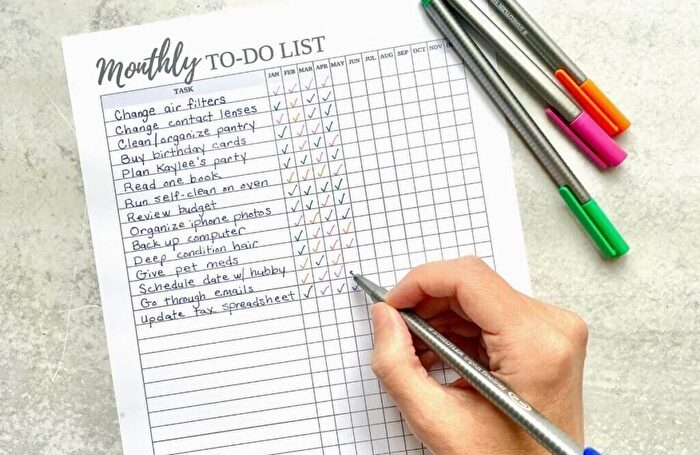 Monthly TO-DO LIST
TASK JAN FEB MAR APR MAY JUN JUL AUG SEP OCT NOV
Change air filters
Change contact lenses
Clean/organize pantry
Buy birthday cards
Plan Kaylee's party
Read one book
Run self-clean on oven
Review budget
Organize iphone photos
Back up computer
Deep condition hair
Give pet meds
Schedule date w/ hubby
Go through emails
Update tax spreadsheet